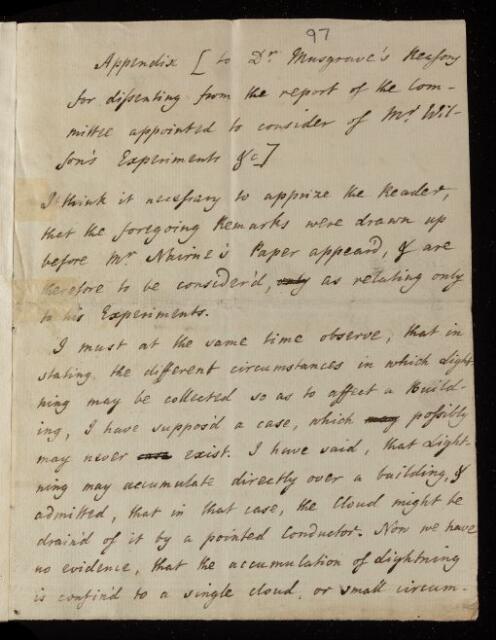 97
Appendix [ to Dr Musgrave's Reasons
for dissenting from the report of the Com-
mittee appointed to consider of Mr Wil-
son's Experiments &c]
I think it necessary to apprize the Reader,
that the foregoing Remarks were drawn up
before Mr Nairne's Paper appear'd, & are
therefore to be consider'd, only as relating only
to his Experiments.
I must at the same time observe, that in
stating the different circumstances in which Light-
ning may be collected so as to affect a Build-
ing, I have suppos'd a case, which may possibly
may never exist. I have said, that Light-
ning may accumulate directly over a building, &
admitted, that in that case, the Cloud might be
drain'd of it by a pointed Conductor. Now we have
no evidence, that the accumulation of Lightning
is confin'd to a single cloud, or small circum-